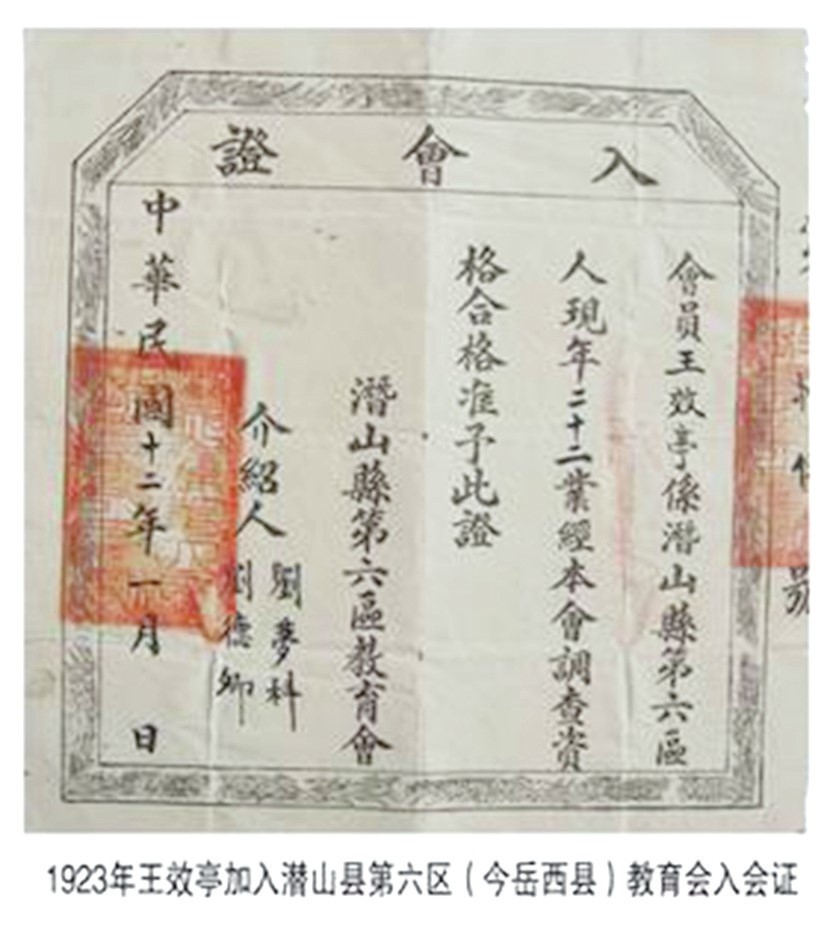 入會證
會員王效亭係潛山縣第六區
人現年二十二業經本會調查資
格合格准予此證
潛山縣第六區教育會
介紹人
劉夢科
劉德卿
中華民國十二年一月 日
號
1923年王效亭加入潜山县第六区（今岳西县）教育会入会证